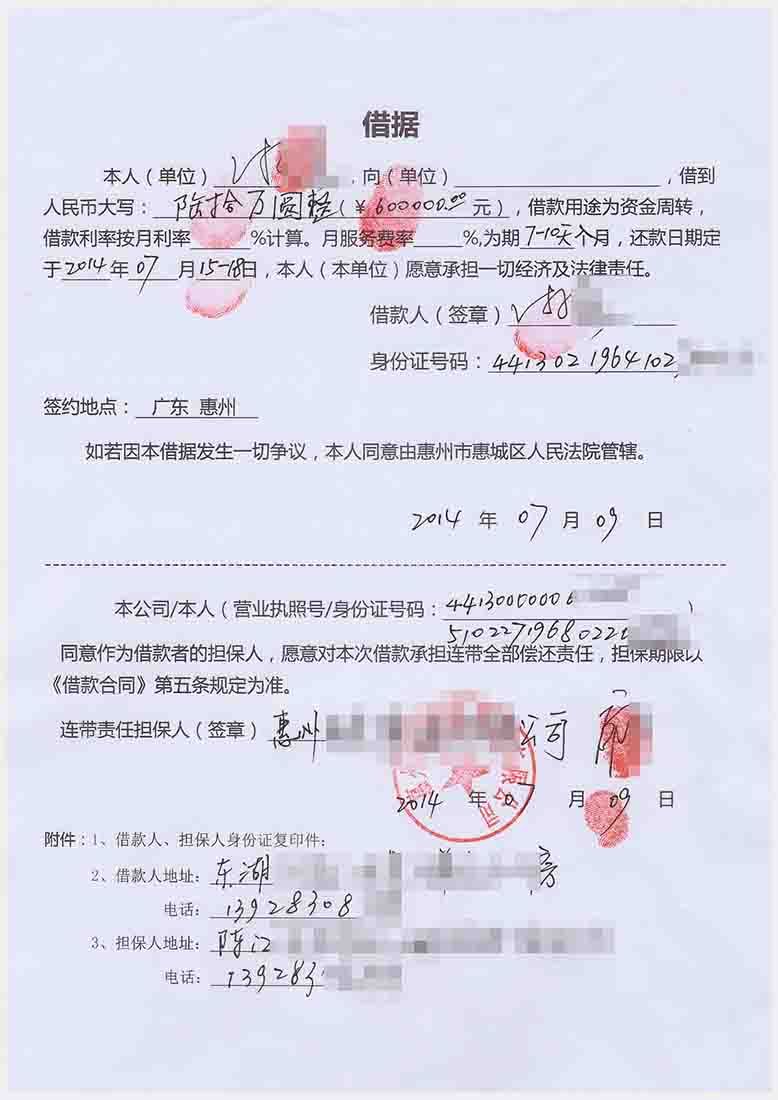 借据
本人（单位），向（单位），借到
人民币大写：陆拾万圆整（￥600000.00元），借款用途为资金周转，
借款利率按月利率%计算。月服务费率%,为期7-10天个月，还款日期定
于2014年07月15-18日，本人（本单位）愿意承担一切经济及法律责任。
借款人（签章）
身份证号码：441302196410 2
签约地点：广东 惠州
如若因本借据发生一切争议，本人同意由惠州市惠城区人民法院管辖。
2014年07月09日
本公司/本人（营业执照号/身份证号码：4413000000 ）
5102271968022
同意作为借款者的担保人，愿意对本次借款承担连带全部偿还责任，担保期限以
《借款合同》第五条规定为准。
连带责任担保人（签章）惠州 公司
2014年07月09日
附件：1、借款人、担保人身份证复印件：
2、借款人地址：东湖
电话：13928308
3、担保人地址：陈江
电话：139283